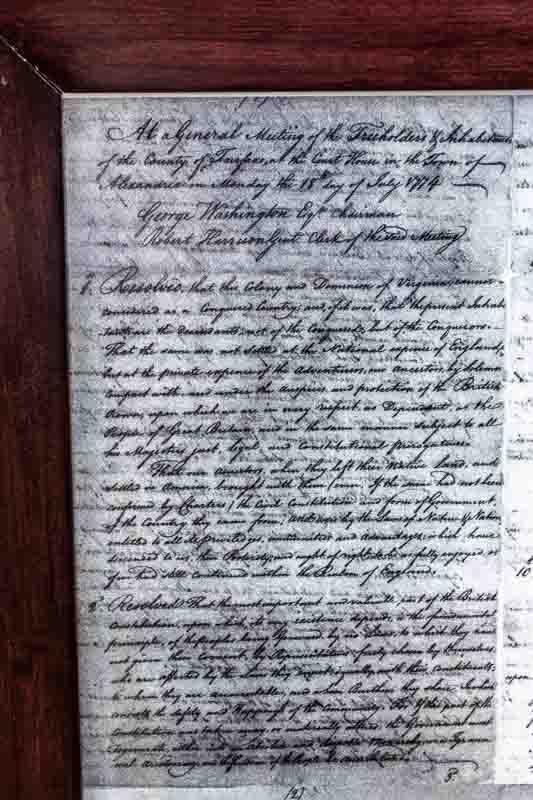 At a General Meeting of the Freeholders & Inhabitants
of the County of Fairfax, at the Court House in the Town of
Alexandria on Monday the 18th day of July 1774
George Washington Esqr. Chairman
Robert Harrison Gent. Clerk of the said Meeting
1. Resolved, that this Colony and Dominion of Virginia, cannot be
considered as a Conquered Country; and, if it was, that the present Inhabi
tants are the Descendants, not of the Conquered, but of the Conquerors.—
That the same was not settled at the National expence of England,
but at the private expence of the Adventurers, our Ancestors, by solemn
Compact with, and under the Auspices and protection of the British
Crown, upon which we are in every respect as Dependant, as the
People of Great Britain, and in the same manner subject to all
his Majesty's just, legal, and Constitutional prerogatives.
That our Ancestors, when they left their Native Land, and
settled in America, brought with them (even if the same had not been
confirmed by Charters) the Civil Constitution and form of Government
of the Country they came from; and were by the Laws of Nature & Nations
entitled to all its priviledges, immunities and advantages; which have
descended to us, their Posterity, and ought of right to be as fully enjoyed, as
if we had still continued within the Realm of England.
2. Resolved. That the most important and valuable part of the British
Constitution, upon which its very existence depends, is the fundamental
principle, of the people's being Governed by no Laws, to which they have
not given their Consent, by Representatives freely chosen by themselves;
who are affected by the Laws they enact equally with their Constituents;
to whom they are accountable, and whose Burthens they share; in which
consists the safety and Happiness of the Community: For if this part of the
Constitution was taken away, or materially altered, the Government must
degenerate either into an absolute and despotic Monarchy, or a Tyrannical
Aristocracy, and the freedom of the people be annihilated.
3.
(2)
10